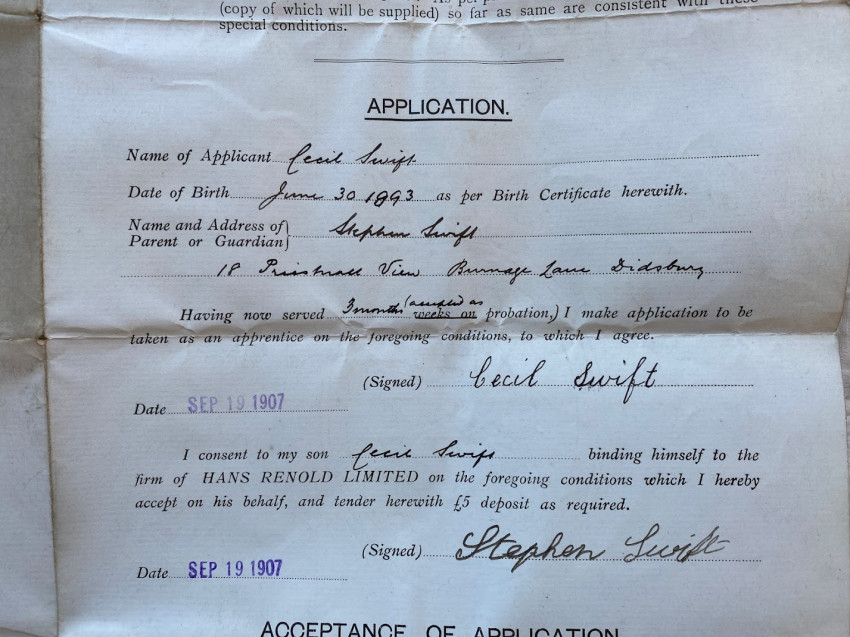 (copy of which will be supplied) so far as same are consistent with these
special conditions.
APPLICATION.
Name of Applicant Cecil Swift
Date of Birth June 30 1893 as per Birth Certificate herewith.
Name and Address of
Parent or Guardian} Stephen Swift
18 View Burnage Lane Didsbury
Having now served 3 months (accepted as weeks on probation,) I make application to be
taken as an apprentice on the foregoing conditions, to which I agree.
(Signed) Cecil Swift
Date SEP 19 1907
I consent to my son Cecil Swift binding himself to the
firm of HANS RENOLD LIMITED on the foregoing conditions which I hereby
accept on his behalf, and tender herewith £5 deposit as required.
(Signed) Stephen Swift
Date SEP 19 1907
ACCEPTANCE OF APPLICATION